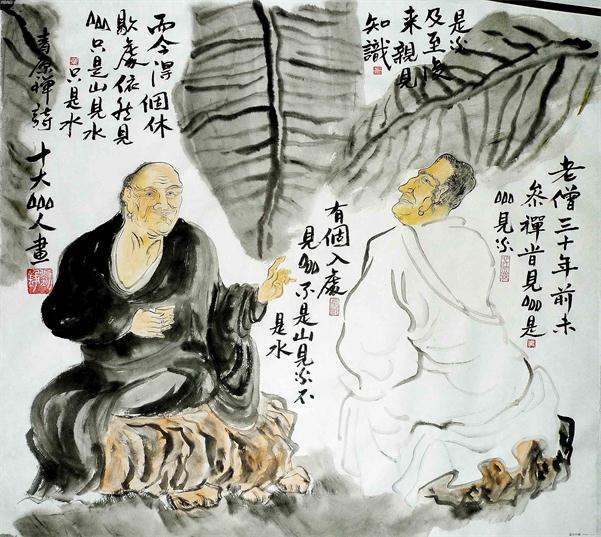 老僧三十年前未
參禪昔見山是
山見水
是水
及至後
来親見
知識
有個入處
見山不是山見水不
是水
而今得個休
歇處依然見
山只是山見水
只是水
青原禪詩
十大山人畫